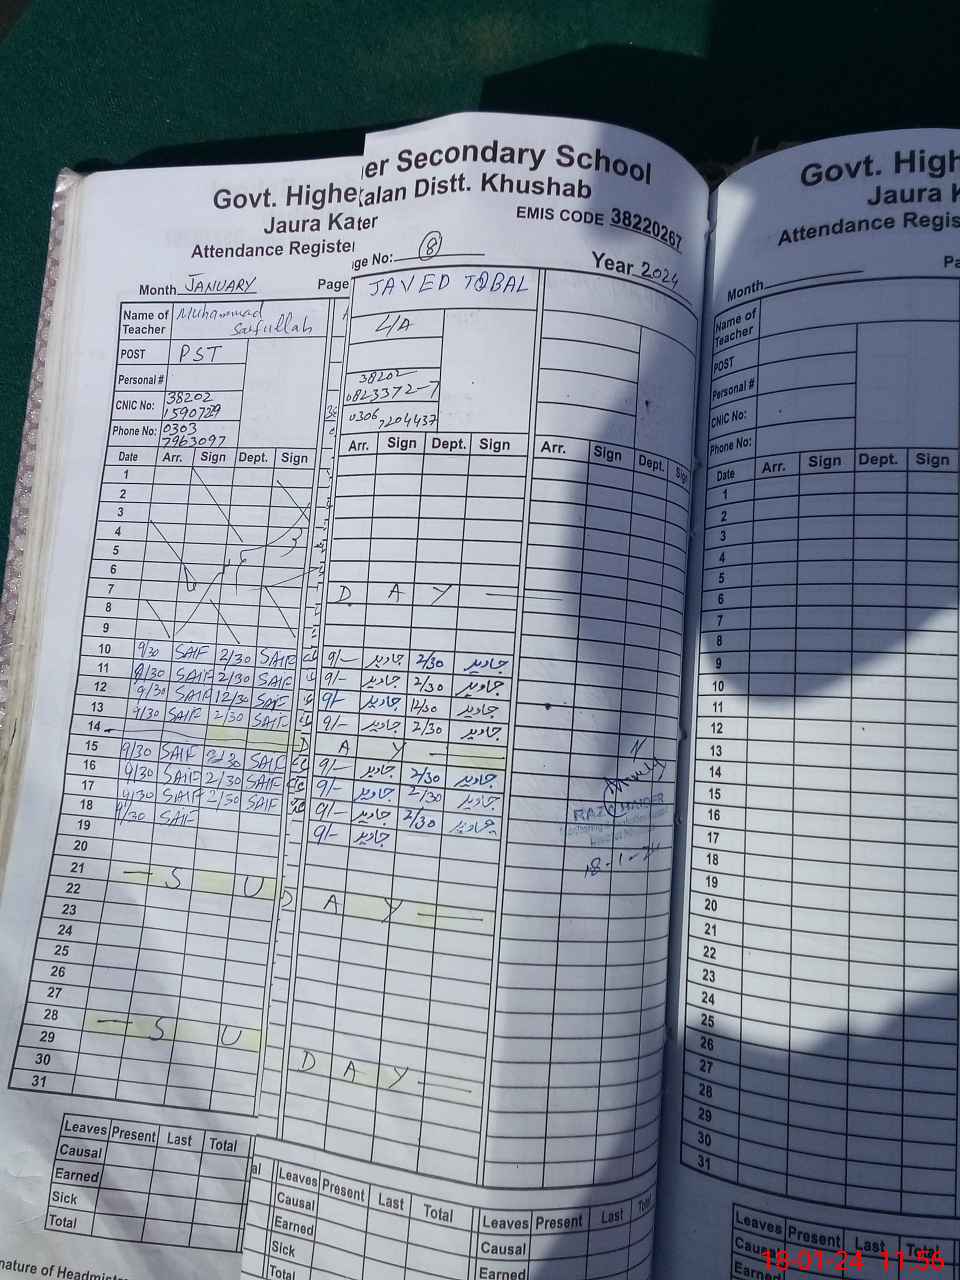 Govt. Highe er Secondary School
Jaura Ka Kalan Distt. Khushab
Attendance Register
EMIS CODE 38220267
Month JANUARY
Page
ge No: 8
Year 2024
Name of Teacher Muhammad Saifullah
POST PST
Personal #
CNIC No: 38202 1590729
Phone No: 0303 7963097
JAVED IQBAL
L/A
38202
0823372-7
0306 7204437
Date Arr. Sign Dept. Sign
Arr. Sign Dept. Sign
Arr. Sign Dept. Sign
1
2
3
4
5
6
7 D A Y
8
9
10 9/30 SAIF 2/30 SAIF 9/- جاوید 2/30 جاوید
11 9/30 SAIF 2/30 SAIF 9/- جاوید 2/30 جاوید
12 9/30 SAIF 12/30 SAIF 9/- جاوید 12/30 جاوید
13 9/30 SAIF 2/30 SAIF 9/- جاوید 2/30 جاوید
14 D A Y
15 9/30 SAIF 2/30 SAIF 9/- جاوید 2/30 جاوید
16 9/30 SAIF 2/30 SAIF 9/- جاوید 2/30 جاوید
17 9/30 SAIF 2/30 SAIF 9/- جاوید 2/30 جاوید
18 9/30 SAIF 9/- جاوید
19
20
21 S U D A Y
22
23
24
25
26
27
28 S U D A Y
29
30
31
18-1-24
Leaves Present Last Total
Causal
Earned
Sick
Total
Leaves Present Last Total
Causal
Earned
Sick
Total
Leaves Present Last
Causal
Earned
Govt. High
Jaura K
Attendance Regis
Month
Name of Teacher
POST
Personal #
CNIC No:
Phone No:
Date Arr. Sign Dept. Sign
1
2
3
4
5
6
7
8
9
10
11
12
13
14
15
16
17
18
19
20
21
22
23
24
25
26
27
28
29
30
31
Leaves Present Last Total
Earned
18-01-24 11:56